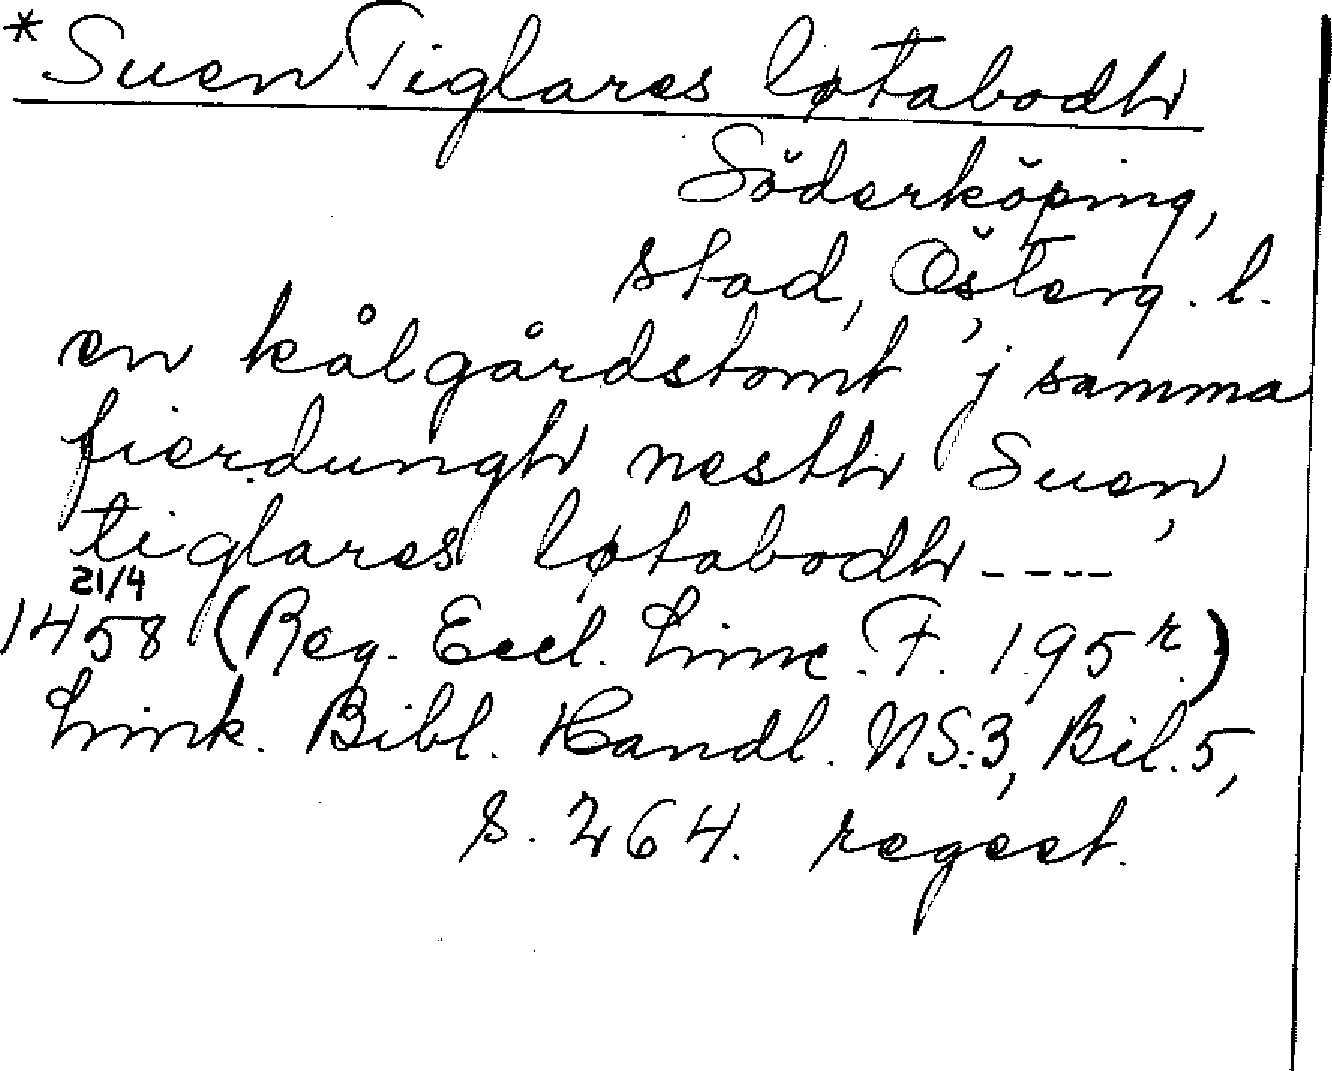 *Suen Tiglares løtabodh
Söderköping,
stad, Österg. l.
en kålgårdstomt j samma
fierdungh nesth Suen
tiglares løtabodh ----,
21/4
1458 (Reg. Eccl. Linc. F. 195r.)
Link. Bibl. Handl. NS:3, Bil. 5,
s. 264. regest.